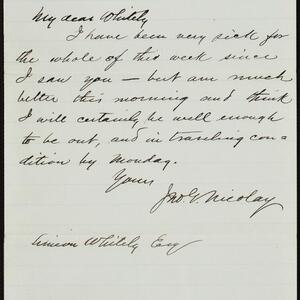 My dear Whitely
I have been very sick for
the whole of this week since
I saw you – but am much
better this morning and think
I will certainly be well enough
to be out, and in traveling con-
dition by Monday.
Yours
Jno. G. Nicolay
Simeon Whitely Esq